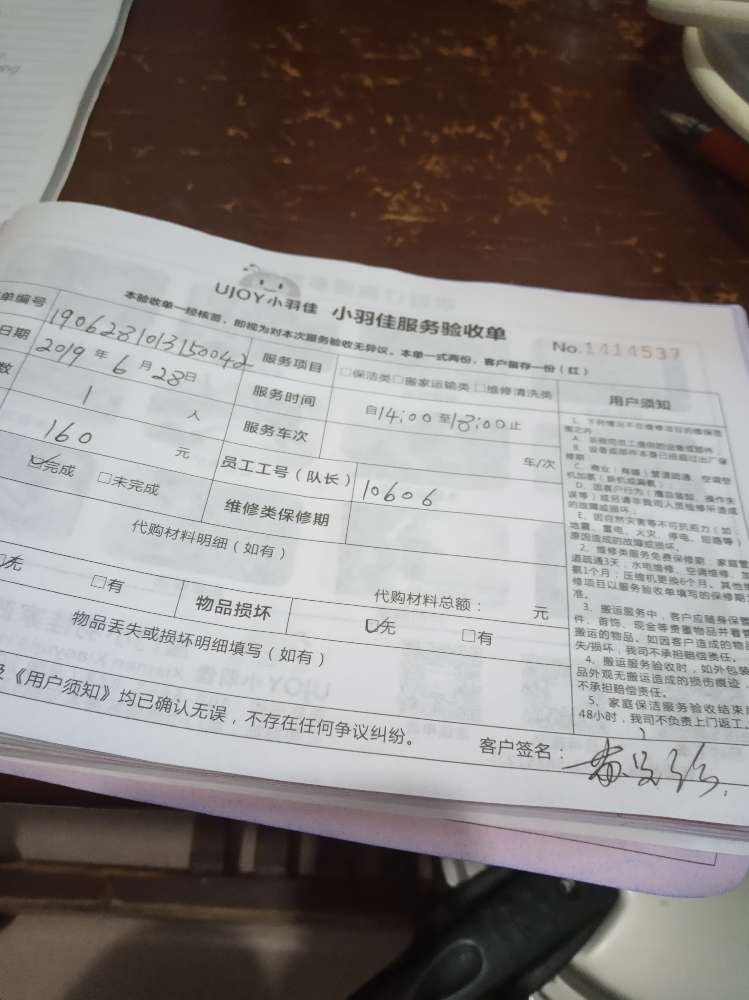 UJOY小羽佳 小羽佳服务验收单
本验收单一经核签，即视为对本次服务验收无异议。本单一式两份，客户留存一份（红）
No.1414537
单编号 1906281013150042
服务项目 □保洁类□搬家运输类 □维修清洗类
用户须知
日期 2019 年 6 月 28日
服务时间 自14:00至18:00止
数 1 人
服务车次 车/次
160 元
员工工号（队长） 10606
完成 □未完成
维修类保修期
代购材料明细（如有）
代购材料总额： 元
无 □有
物品损坏 无 □有
物品丢失或损坏明细填写（如有）
及《用户须知》均已确认无误，不存在任何争议纠纷。
客户签名：
1、下列情况不在维修项目的维保范
围之内：
B、设备或部件本身已经超过出厂保
修期
C、商业（商铺）管道疏通、空调整
机加氟（新机或漏氟）
的故障或损坏。
E、因自然灾害等不可抗力（如：
地震、雷电、火灾、停电、短路等）
原因造成的故障或损坏。
2、维修类服务免费保修期：家庭管
道疏通3天；水电维修、空调维修
氟1个月；压缩机更换6个月。其他维
修项目以服务验收单填写的保修期为
准。
3、搬运服务中，客户应随身保管
件、首饰、现金等贵重物品并看管
搬运的物品。如因客户造成的物品
失/损坏，我司不承担赔偿责任。
4、搬运服务验收时，如外包装
品外观无搬运造成的损伤痕迹，
不承担赔偿责任。
5、家庭保洁服务验收结束后
48小时，我司不负责上门返工。